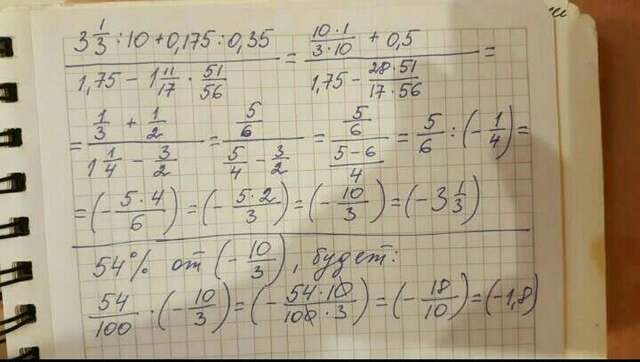 (3 1/3 : 10 + 0,175 : 0,35) / (1,75 - 1 11/17 · 51/56) = (10·1/3·10 + 0,5) / (1,75 - 28·51/17·56) =
= (1/3 + 1/2) / (1 1/4 - 3/2) = (5/6) / (5/4 - 3/2) = (5/6) / ((5-6)/4) = 5/6 : (-1/4) =
= (-5·4/6) = (-5·2/3) = (-10/3) = (-3 1/3)
54% от (-10/3), будет:
54/100 · (-10/3) = (-54·10/100·3) = (-18/10) = (-1,8)